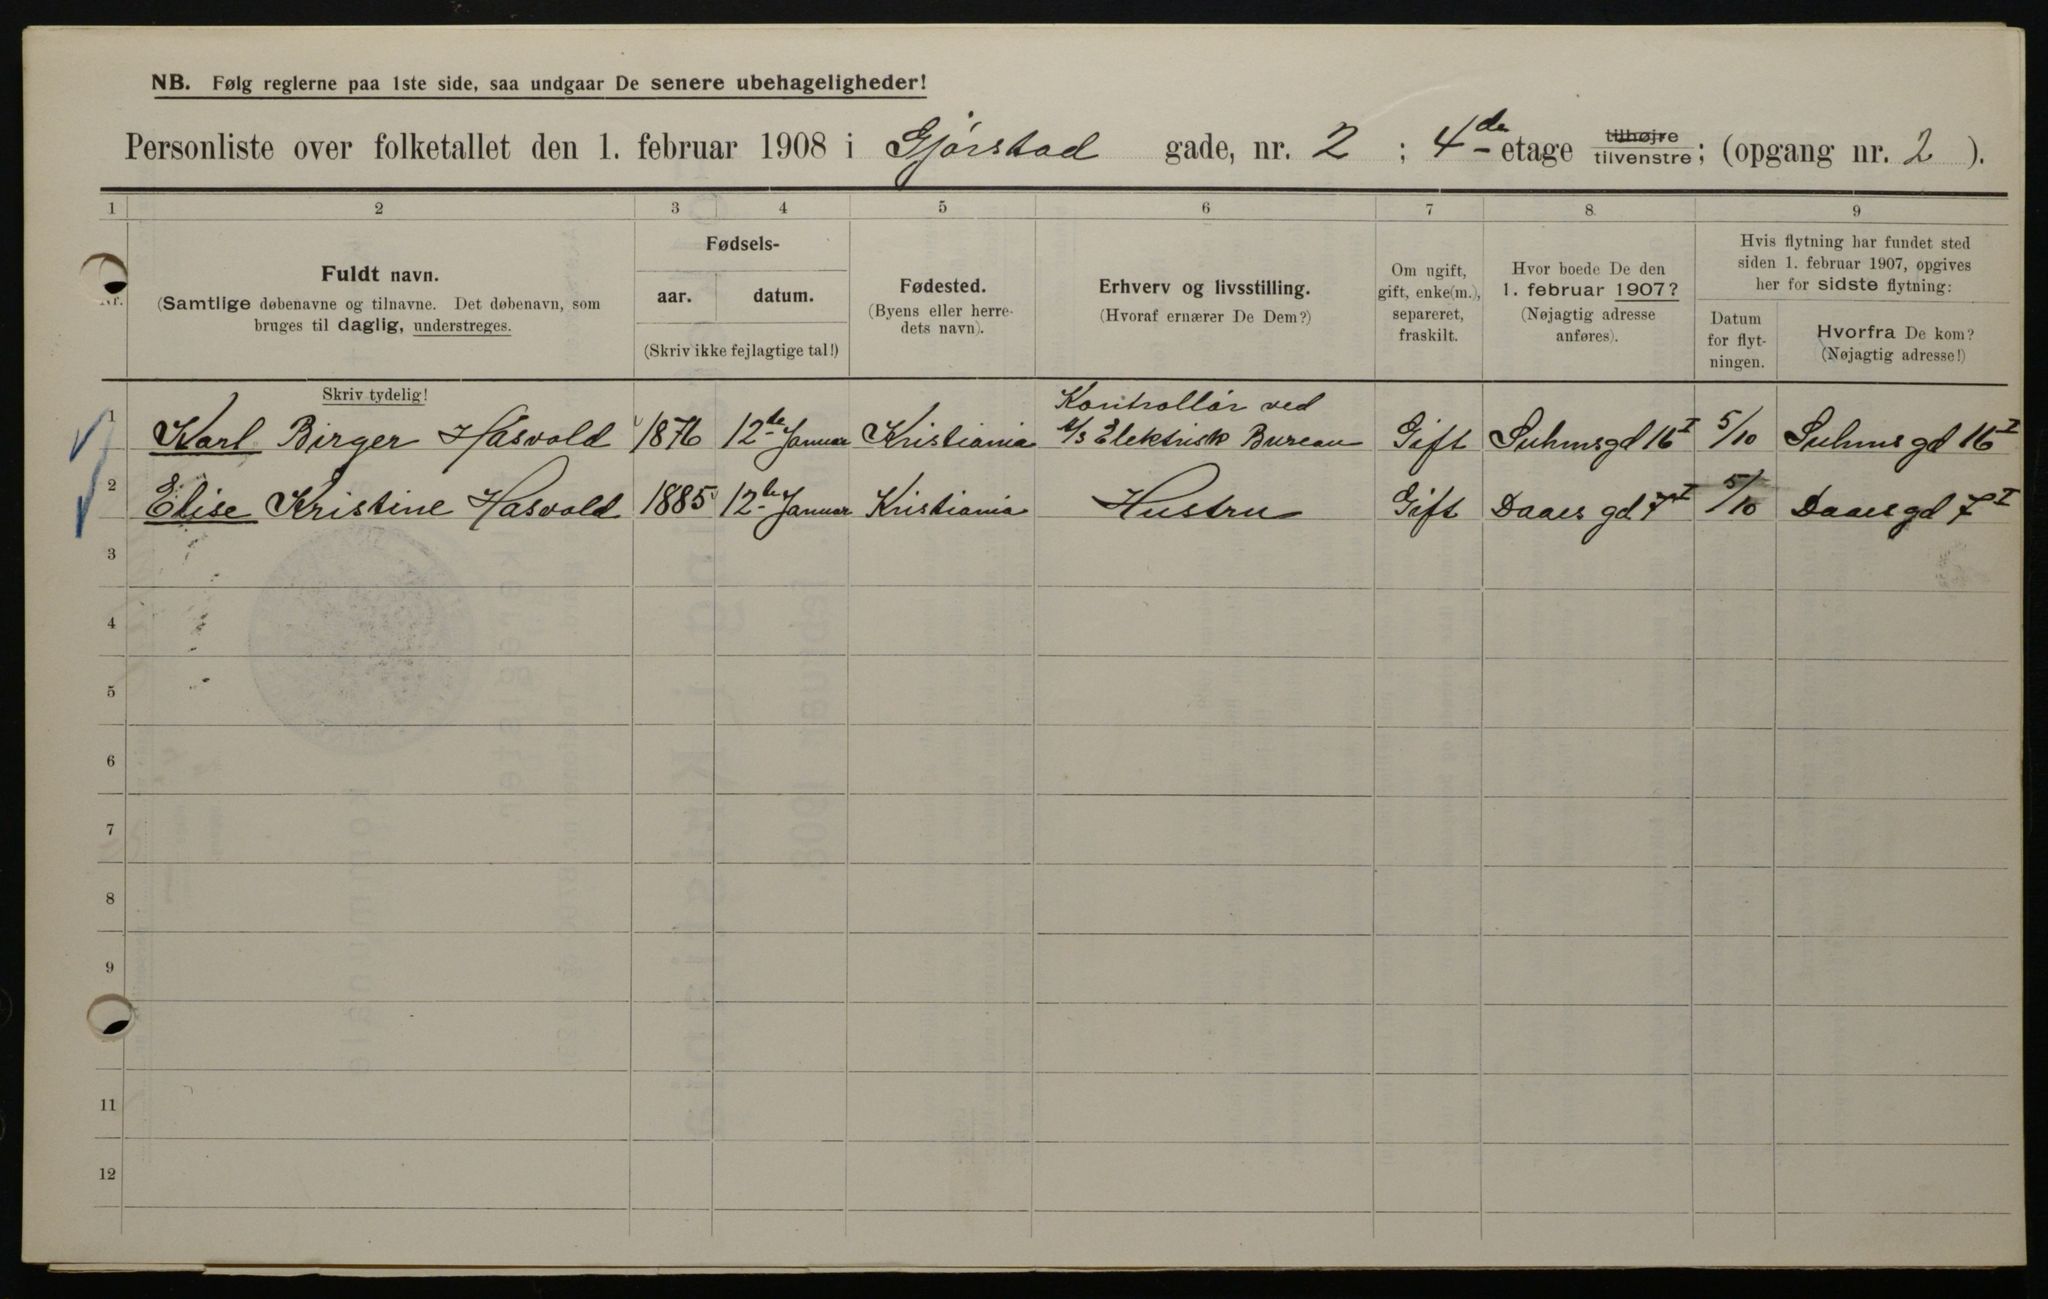 NB. Følg reglerne paa 1ste side, saa undgaar De senere ubehageligheder!
Personliste over folketallet den 1. februar 1908 i Gjørstad gade, nr. 2 ; 4de etage tilhøjre tilvenstre; (opgang nr. 2 ).
1 2 3 4 5 6 7 8. 9
Nr.
Fuldt navn.
(Samtlige døbenavne og tilnavne. Det døbenavn, som
bruges til daglig, understreges.
Skriv tydelig!
Fødsels-
aar. datum.
(Skriv ikke fejlagtige tal!)
Fødested.
(Byens eller herre-
dets navn).
Erhverv og livsstilling.
(Hvoraf ernærer De Dem?)
Om ugift,
gift, enke(m.),
separeret,
fraskilt.
Hvor boede De den
1. februar 1907?
(Nøjagtig adresse
anføres).
Hvis flytning har fundet sted
siden 1. februar 1907, opgives
her for sidste flytning:
Datum
for flyt-
ningen.
Hvorfra De kom?
(Nøjagtig adresse!)
Kontrollør ved
1 Karl Birger Hasvold 1876 12te Januar Kristiania A/S Elektrisk Bureau Gift Suhmsgd 16 I 5/10 Suhms gd 16 I
2 Elise Kristine Hasvold 1885 12te Januar Kristiania Hustru Gift Daaes gd 7 I 5/10 Daaes gd 7 I
3
4
5
6
7
8
9
11
12